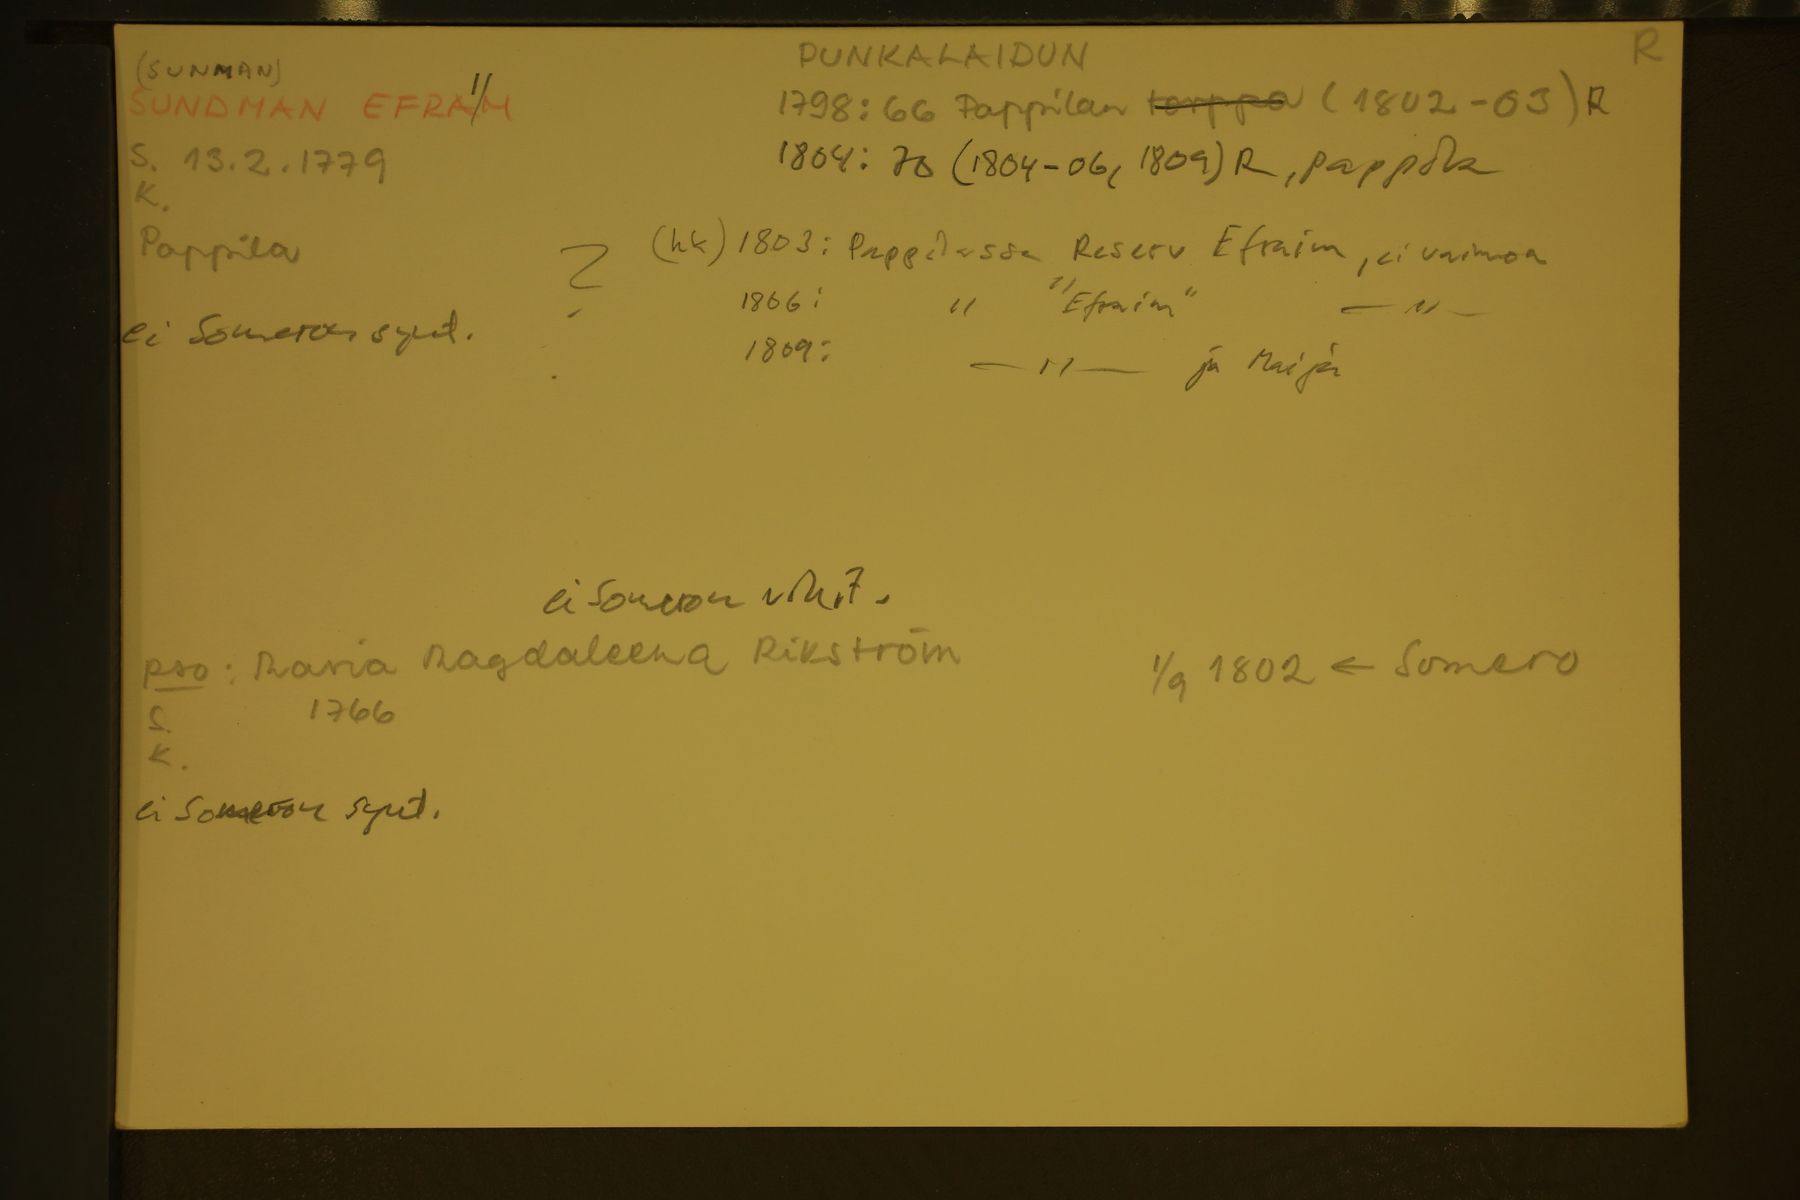 PUNKALAIDUN R
(SUNMAN)
SUNDMAN EFRAIM
1798: 66 Pappilan torppa (1802-03) R
S. 13.2.1779
1804: 70 (1804-06, 1809) R, pappila
K.
Pappila
? (hk) 1803: Pappilassa Reserv Efraim, ei vaimoa
1806: " "Efraim" — " —
ei Someron synt.
1809: — " — ja Maija
ei Someron vih.?.
pso: Maria Magdaleena Rikström 1/9 1802 ← Somero
S. 1766
K.
ei Someron synt.